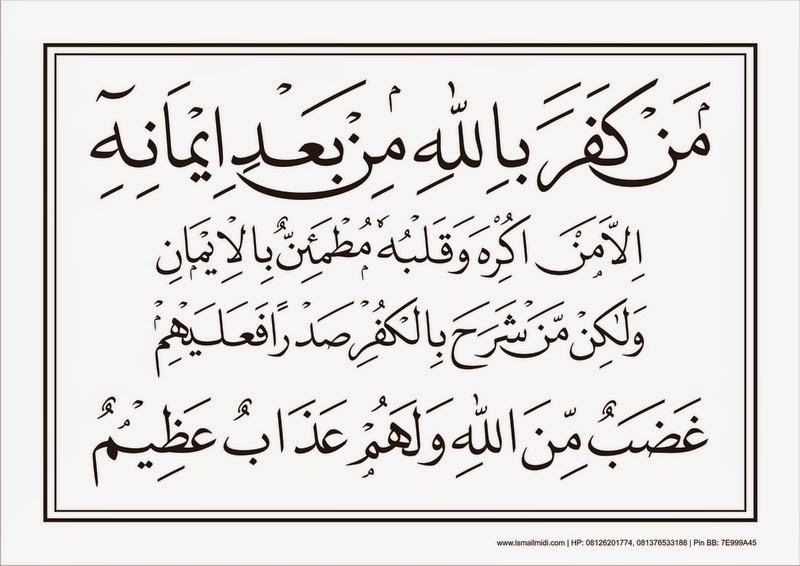 مَنْ كَفَرَ بِاللّٰهِ مِنْ بَعْدِ اِيْمَانِهٖٓ
اِلَّا مَنْ اُكْرِهَ وَقَلْبُهٗ مُطْمَئِنٌّ بِالْاِيْمَانِ
وَلٰكِنْ مَّنْ شَرَحَ بِالْكُفْرِ صَدْرًا فَعَلَيْهِمْ
غَضَبٌ مِّنَ اللّٰهِ وَلَهُمْ عَذَابٌ عَظِيْمٌ
www.ismailmidi.com | HP: 08126201774, 081376533188 | Pin BB: 7E999A45